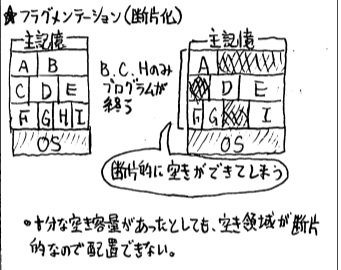 ★フラグメンテーション(断片化)
主記憶
A B
C D E
F G H I
OS
B.C.Hのみ
プログラムが
終了
主記憶
A
D E
F G I
OS
断片的に空きができてしまう
•十分な空き容量があったとしても、空き領域が断片
的なので配置できない。